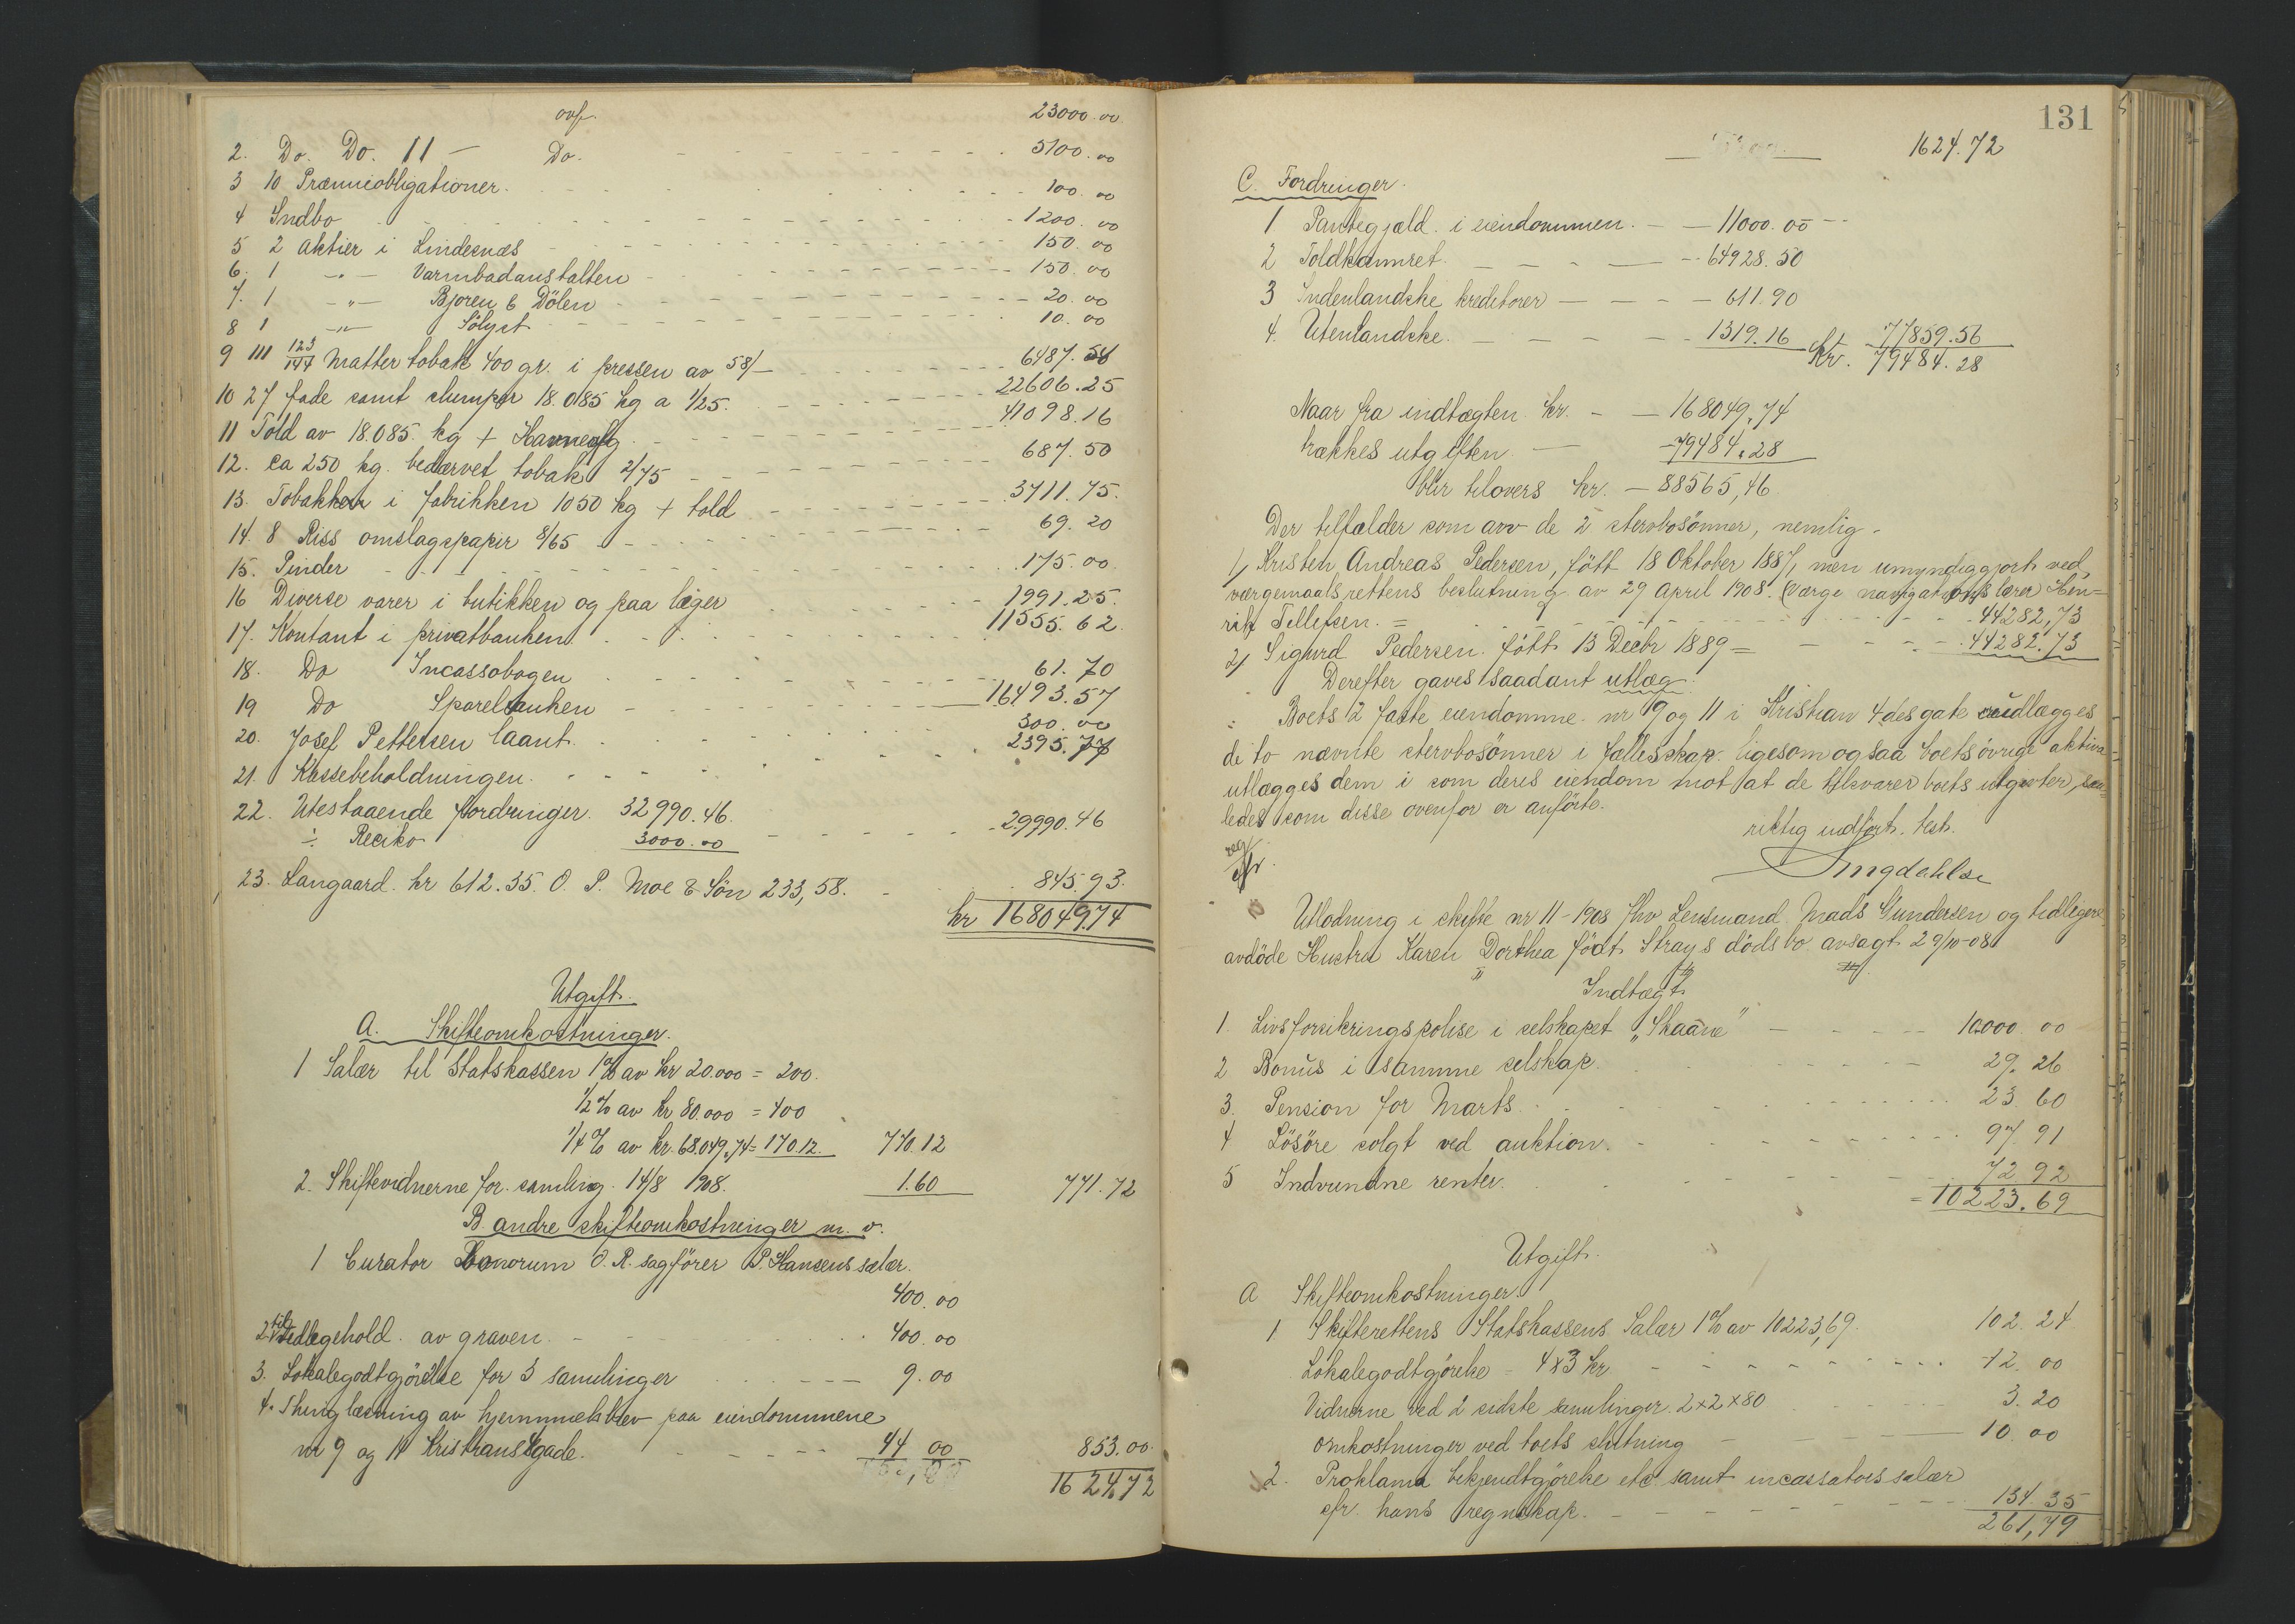 ovf. 23000.00
2. Do. Do. 11 — Do. 5100.00
3 10 Præmieobligationer. 100.00
4 Indbo 1200.00
5 2 aktier i Lindesnæs 150.00
6. 1 —"— Varmbadanstalten 150.00
7. 1 —"— Bjoren & Dölen 20.00
8 1 —"— Sölyst 10.00
9 111 123/144 Matter tobak 400 gr. i pressen av 58/— 6487.54
10 27 fade samt klumper 18.085 kg a 1/25. 22606.25
11 Told av 18.085. kg + Havneafg. 41098.16
12. ca 250 kg. bedærvet tobak 2/75 687.50
13. Tobakken i fabrikken 1050 kg + told 3711.75.
14. 8 Riss omslagspapir 8/65 69.20
15. Pinder 175.00
16 Diverse varer i butikken og paa lager 1991.25.
17. Kontant i privatbanken 11555.62.
18. Do Incassobogen 61.70
19 Do Sparebanken 16493.57
20. Josef Pettersen laant. 300.00
21. Kassebeholdningen. 2395.77
22. Utestaaende fordringer. 32990.46.
÷ Reciko 3000.00 29990.46
23. Langaard. kr 612.35. O. P. Moe & Sön 233,58. 845.93.
kr 168049.74
Utgift.
A. Skifteomkostninger.
1 Salær til Statskassen 1% av kr 20.000 = 200.
1/2% av kr 80.000 = 400
1/4% av kr. 68.049,74 = 170.12. 770.12
2. Skiftevidnerne for samling 14/8 1908. 1.60 771.72
B andre skifteomkostninger m. v.
1 Curator Bonorum O. R. sagförer P. Hansens salær.
400.00
2 til vedlegehold av graven 400.00
3. Lokalegodtgjörelse for 3 samlinger 9.00
4. Thinglæsning av hjemmelsbrev paa eiendommene
nr 9 og 11 Kristians 4gade. 44 00 853.00.
1624,72
131
1624.72
C. Fordringer.
1 Pantegjæld i eiendommen. — — 11000.00
2 Toldkamret. 64928.50
3 Indenlandske kreditorer — 611.90
4. Utenlandske. 1319.16 77859.56
Kr. 79484.28
Naar fra indtægten kr. — — 168049,74
trækkes utgiften — 79484,28
blir tilovers kr. — 88565,46
Der tilfalder som arv de 2 stervbosönner, nemlig.
1, Kristen Andreas Pedersen, född 18 Oktober 1887, men umyndiggjort ved
værgemaalsrettens beslutning av 29 April 1908. (Værge navigationslærer Hen=
rik Tellefsen. = 44282,73
2, Sigurd Pedersen. född 13 Decbr 1889 = 44282.73
Derefter gaves saadant utlæg:
Boets 2 faste eiendomme nr 9 og 11 i Kristian 4des gate utlægges
de to nævnte stervbosönner i fællesskap. ligesom ogsaa boets övrige aktiva
utlægges dem i som deres eiendom mot at de tilsvarer boets utgifter, saa=
ledes som disse ovenfor er anförte.
riktig indfört. test.
reg
Utlodning i skifte nr 11-1908 fhv Lensmand Mads Gundersen og tidligere
avdöde Hustru Karen Dorthea födt Strays dödsbo avsagt 29/10-08
Indtægt
1. Livsforsikringspolise i selskapet "Skaane" 10000 00
2 Bonus i samme selskap. 29.26
3. Pension for Marts. 23.60
4 Lösöre solgt ved auktion. 97.91
5 Indvundne renter. 72 92
= 10223.69
Utgift.
A Skifteomkostninger
1 Skifterettens Statskassens Salær 1% av 10223,69. 102.24
Lokalegodtgörelse = 4 x 3 kr 12.00
Vidnerne ved 2 sidste samlinger. 2x2x80 3.20
omkostninger ved boets slutning 10.00
2. Proklama bekjendtgörelse etc samt incassators salær
cfr. hans regnskap. 134.35
261,79